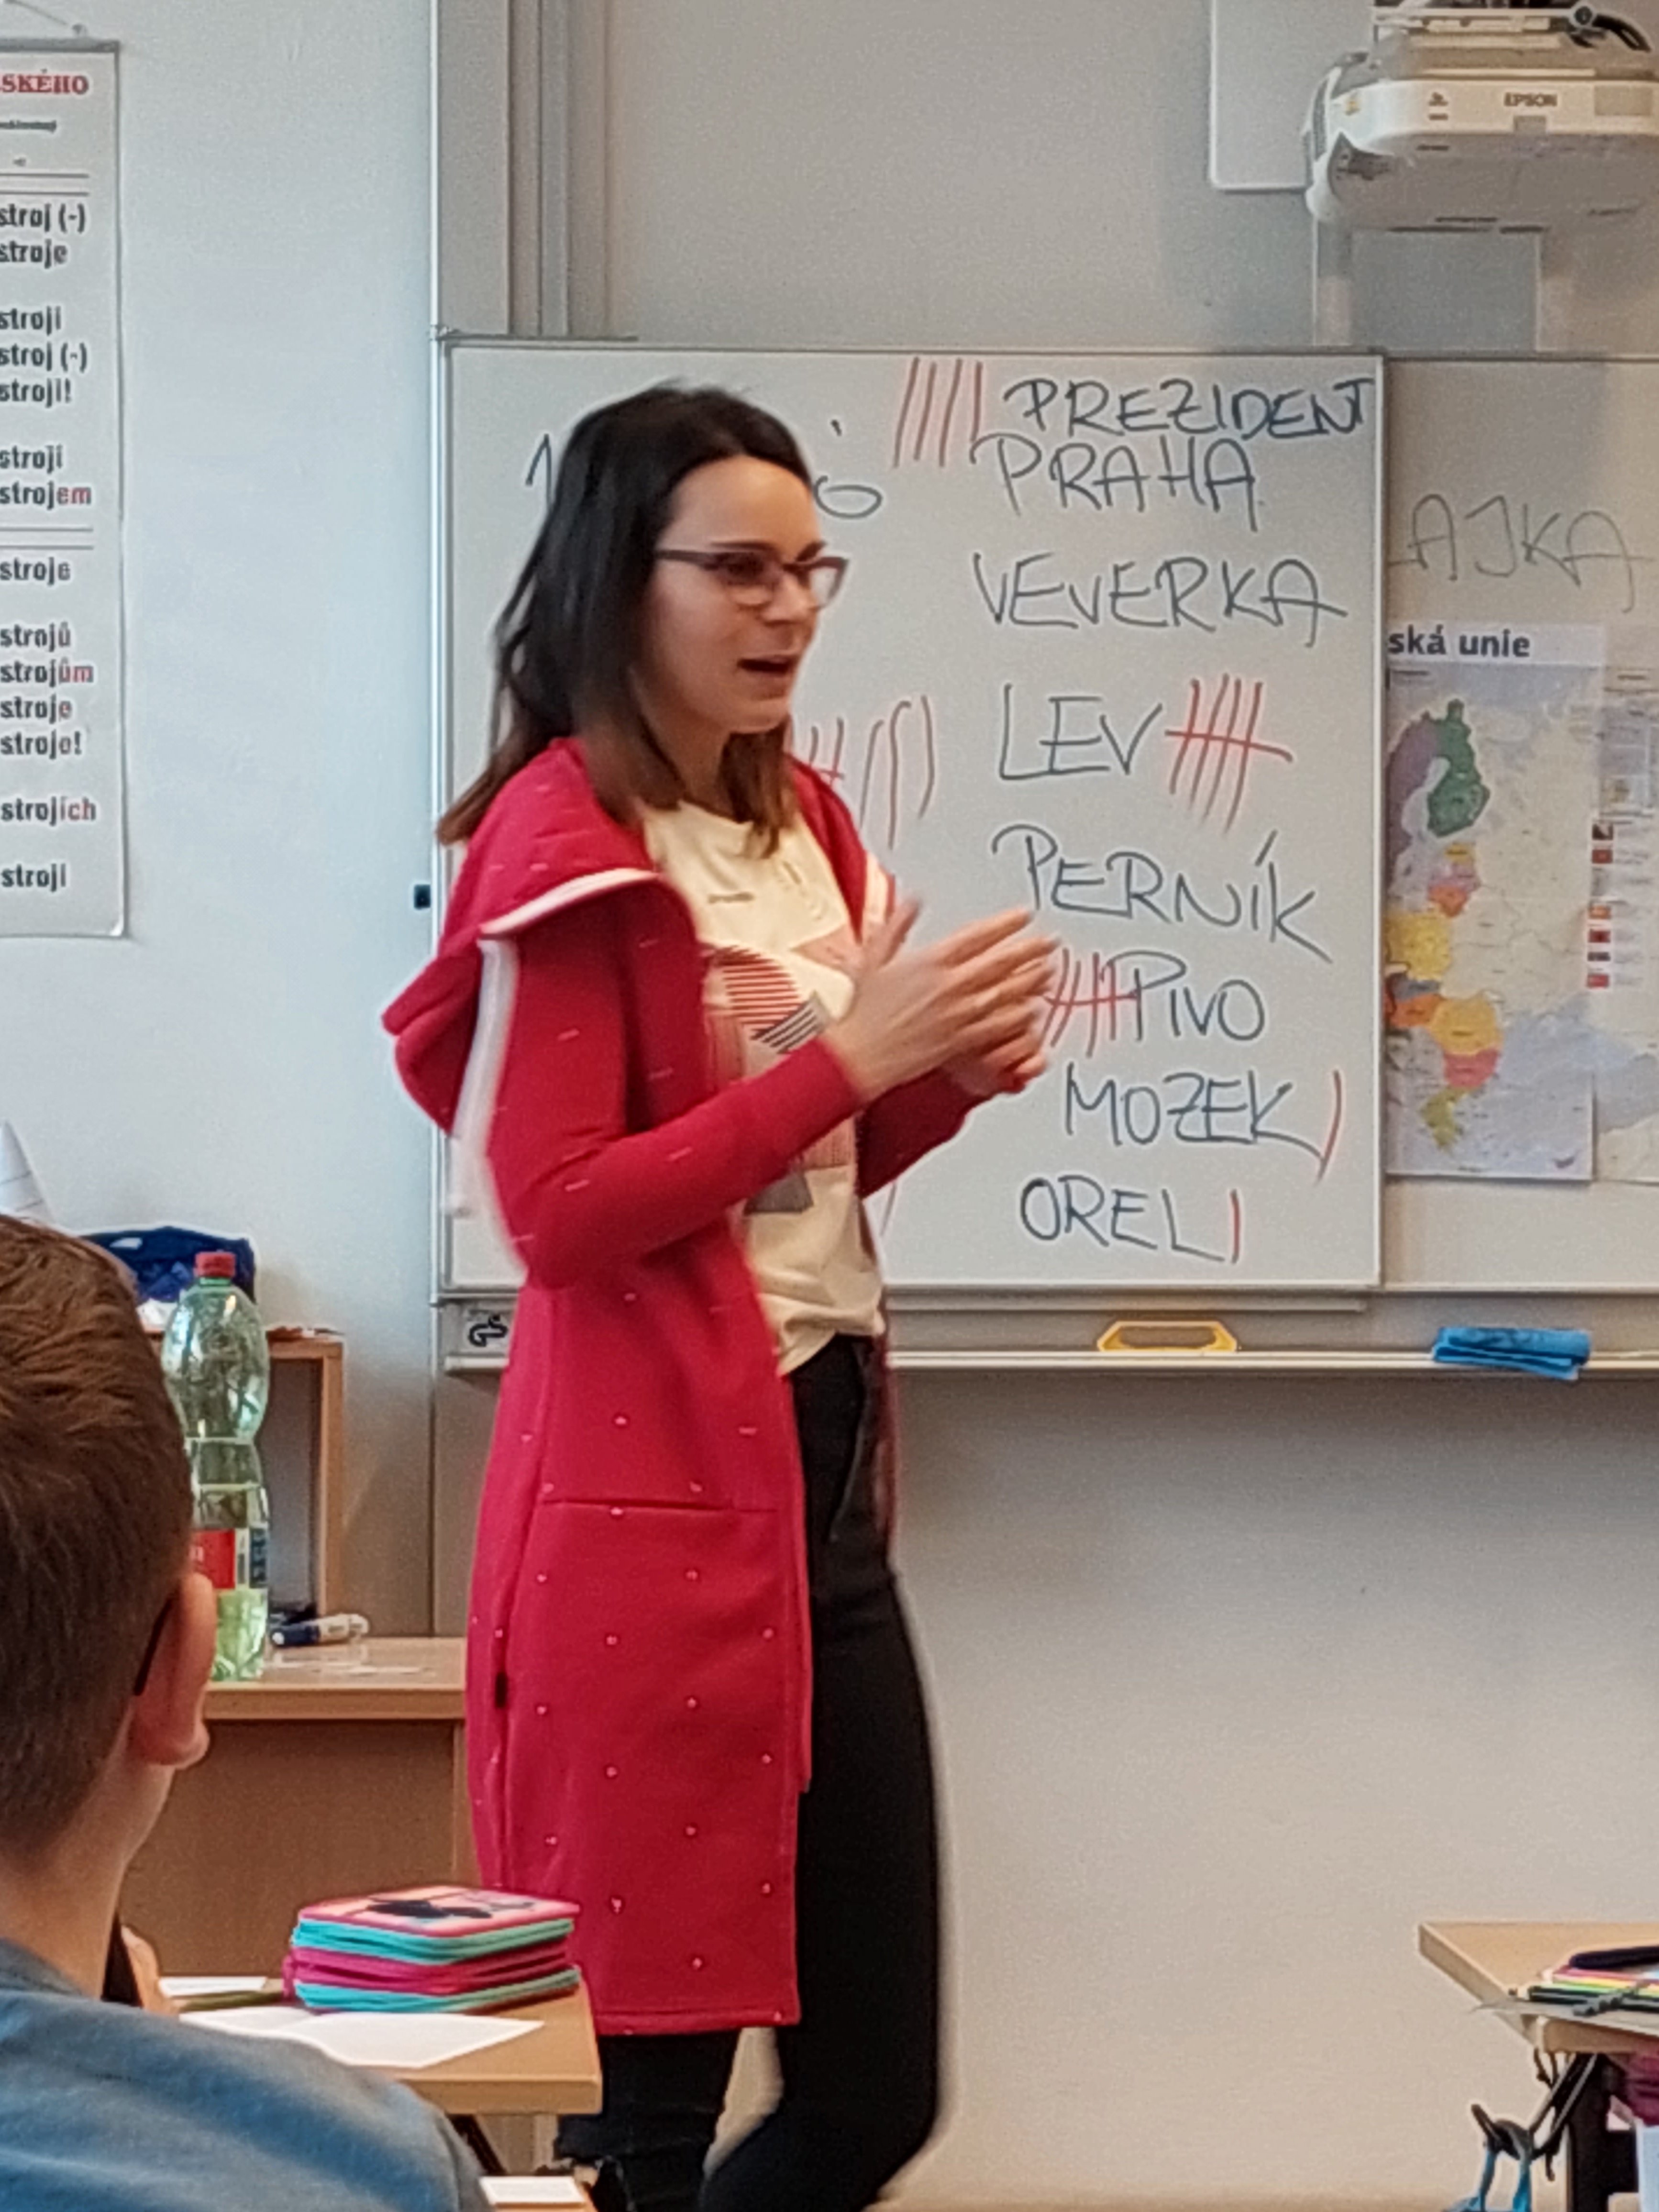 SKÉHO
stroj (-)
stroje
stroji
stroj (-)
stroji!
stroji
strojem
stroje
strojů
strojům
stroje
stroje!
strojích
stroji
EPSON
PREZIDENT
PRAHA
VEVERKA
LEV
PERNÍK
PIVO
MOZEK
OREL
AJKA
ská unie